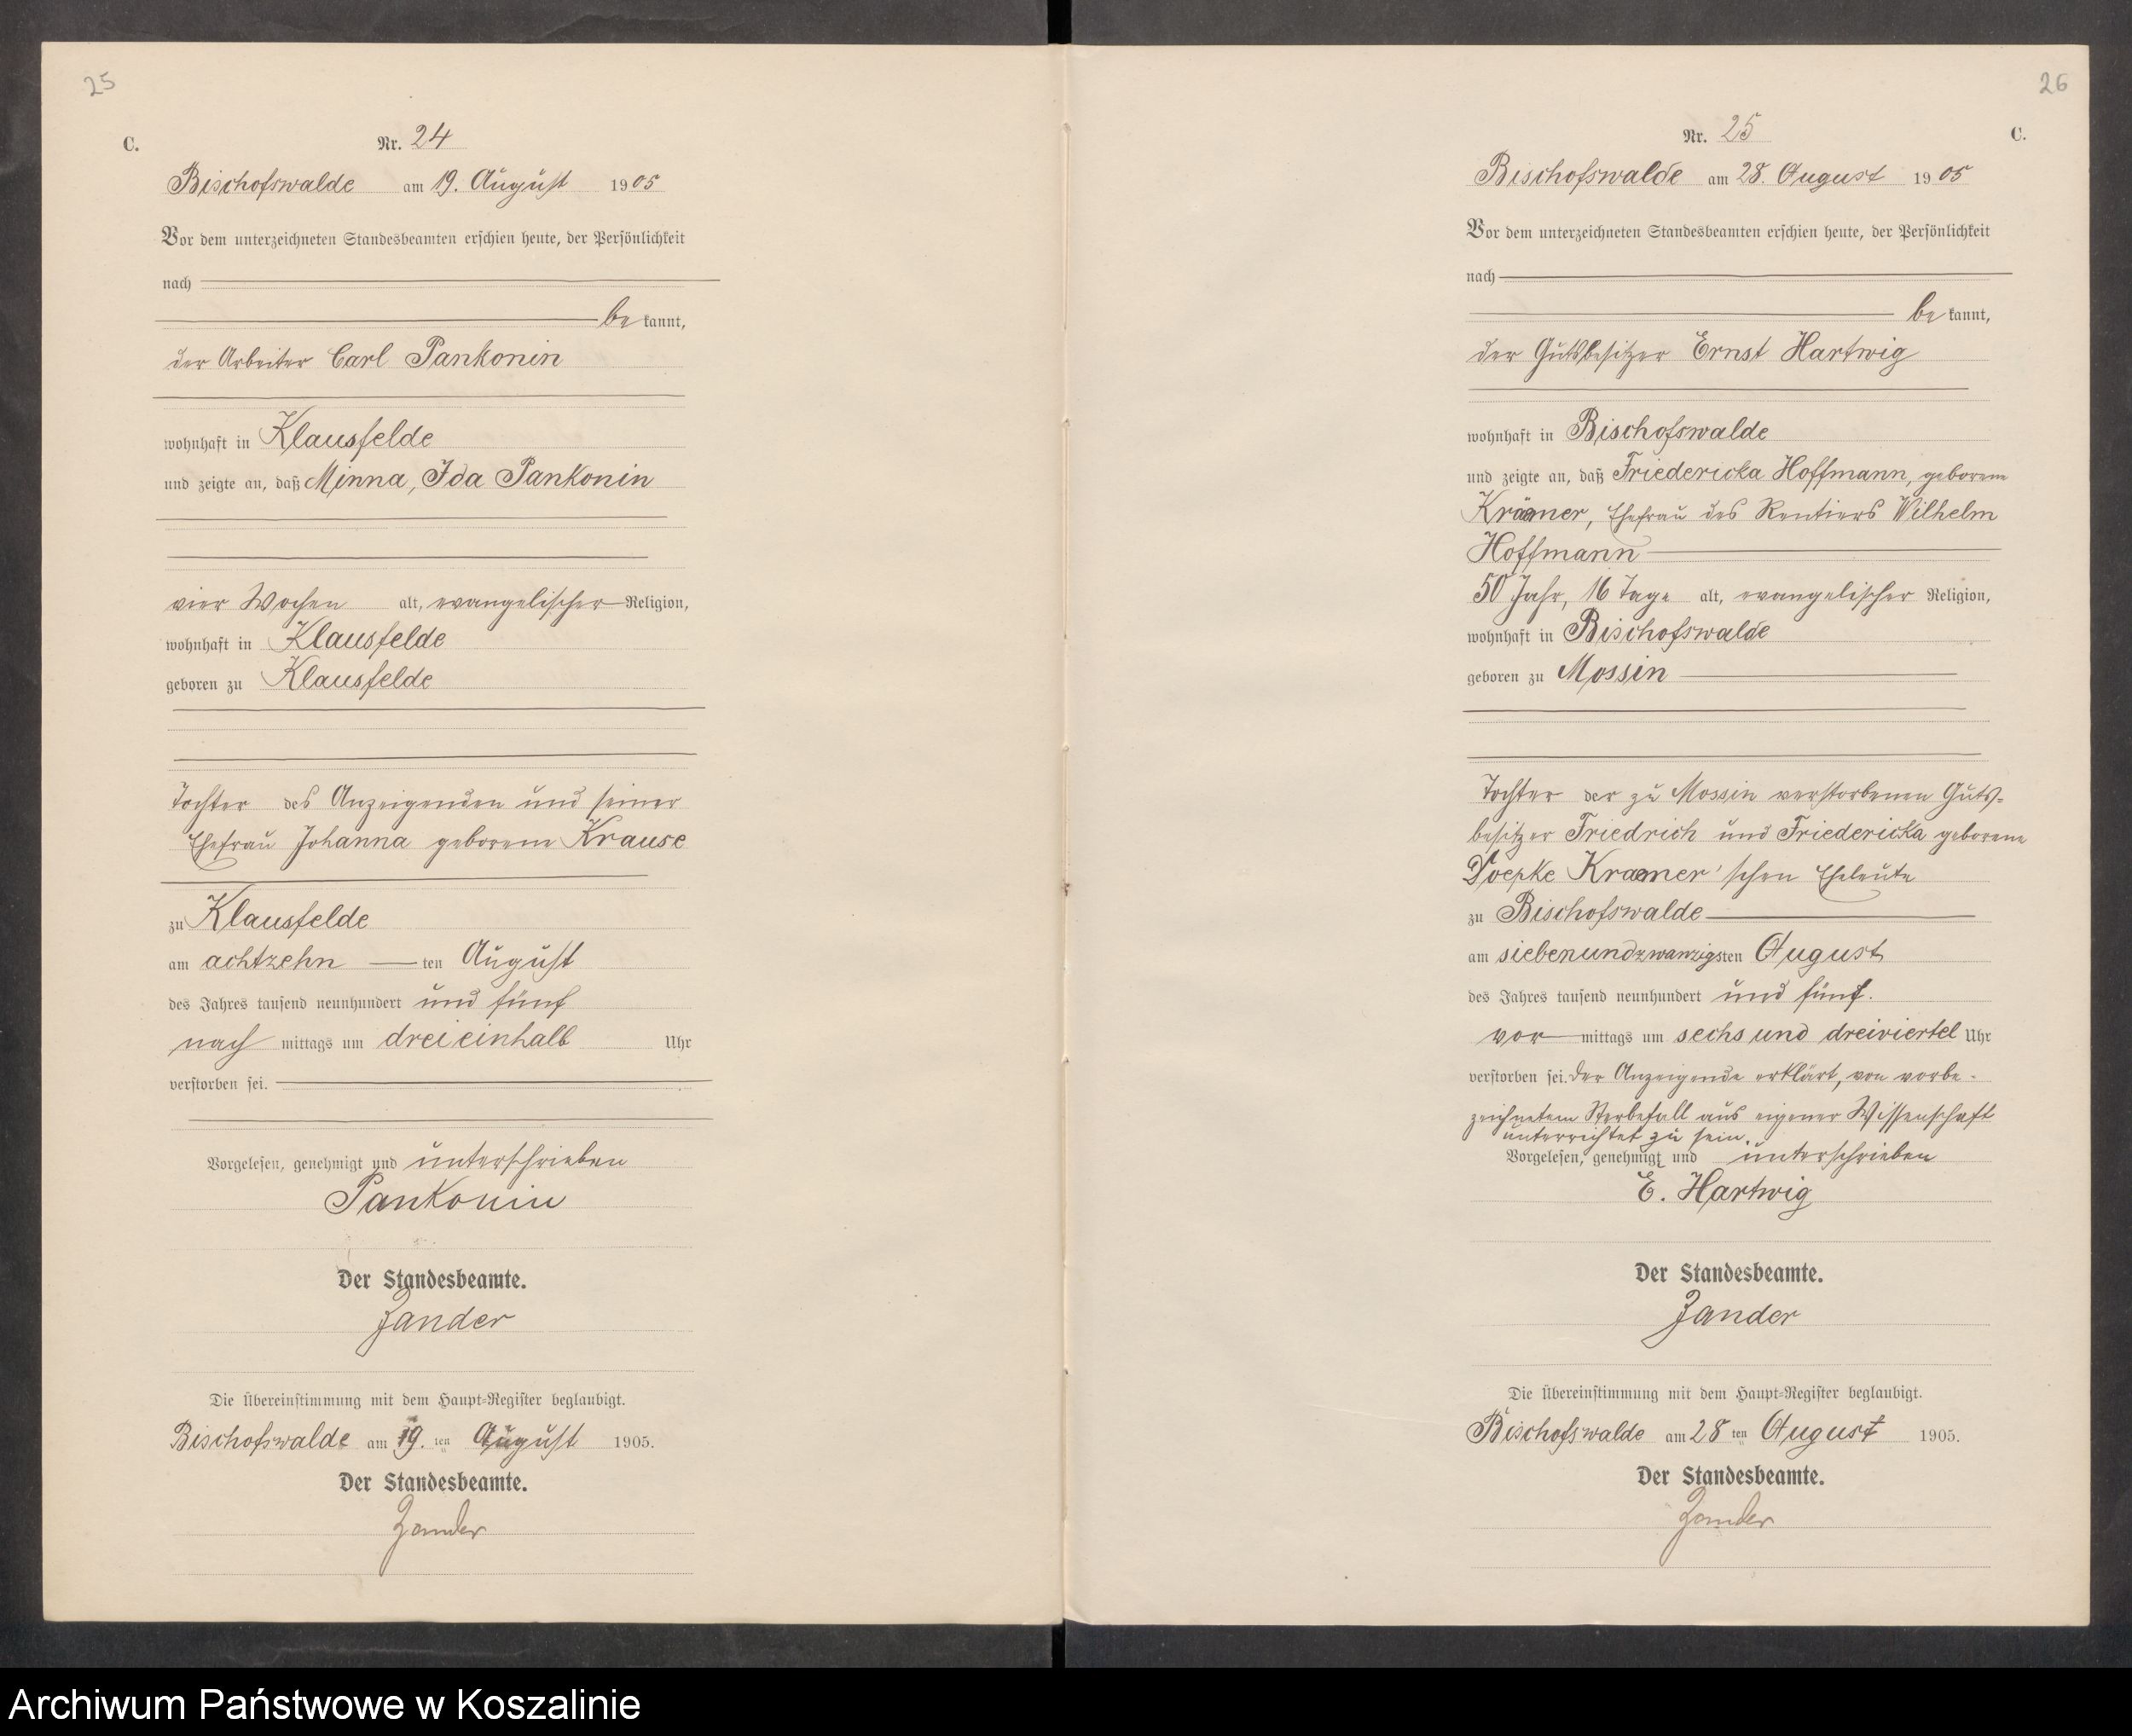 25
C.
Nr. 24
Bischofswalde am 19. August 1905
Vor dem unterzeichneten Standesbeamten erschien heute, der Persönlichkeit
nach
be kannt,
der Arbeiter Carl Pankonin
wohnhaft in Klausfelde
und zeigte an, daß Minna, Ida Pankonin
vier Wochen alt, evangelischer Religion,
wohnhaft in Klausfelde
geboren zu Klausfelde
Tochter des Anzeigenden und seiner
Ehefrau Johanna geborene Krause
zu Klausfelde
am achtzehn ten August
des Jahres tausend neunhundert und fünf
nach mittags um dreieinhalb Uhr
verstorben sei.
Vorgelesen, genehmigt und unterschrieben
Pankonin
Der Standesbeamte.
Zander
Die Übereinstimmung mit dem Haupt-Register beglaubigt.
Bischofswalde am 19. ten August 1905.
Der Standesbeamte.
Zander
26
Nr. 25
C.
Bischofswalde am 28. August 1905
Vor dem unterzeichneten Standesbeamten erschien heute, der Persönlichkeit
nach
be kannt,
der Gutsbesitzer Ernst Hartwig
wohnhaft in Bischofswalde
und zeigte an, daß Friedericka Hoffmann, geborene
Krämer, Ehefrau des Rentiers Wilhelm
Hoffmann
50 Jahr, 16 Tage alt, evangelischer Religion,
wohnhaft in Bischofswalde
geboren zu Mossin
Tochter der zu Mossin verstorbenen Guts-
besitzer Friedrich und Friedericka geborene
Kraemer'schen Eheleute
zu Bischofswalde
am siebenundzwanzigsten August
des Jahres tausend neunhundert und fünf.
vor mittags um sechs und dreiviertel Uhr
verstorben sei. Der Anzeigende erklärt, von vorbe-
zeichnetem Sterbefall aus eigener Wissenschaft
unterrichtet zu sein.
Vorgelesen, genehmigt und unterschrieben
E. Hartwig
Der Standesbeamte.
Zander
Die Übereinstimmung mit dem Haupt-Register beglaubigt.
Bischofswalde am 28 ten August 1905.
Der Standesbeamte.
Zander
Archiwum Państwowe w Koszalinie